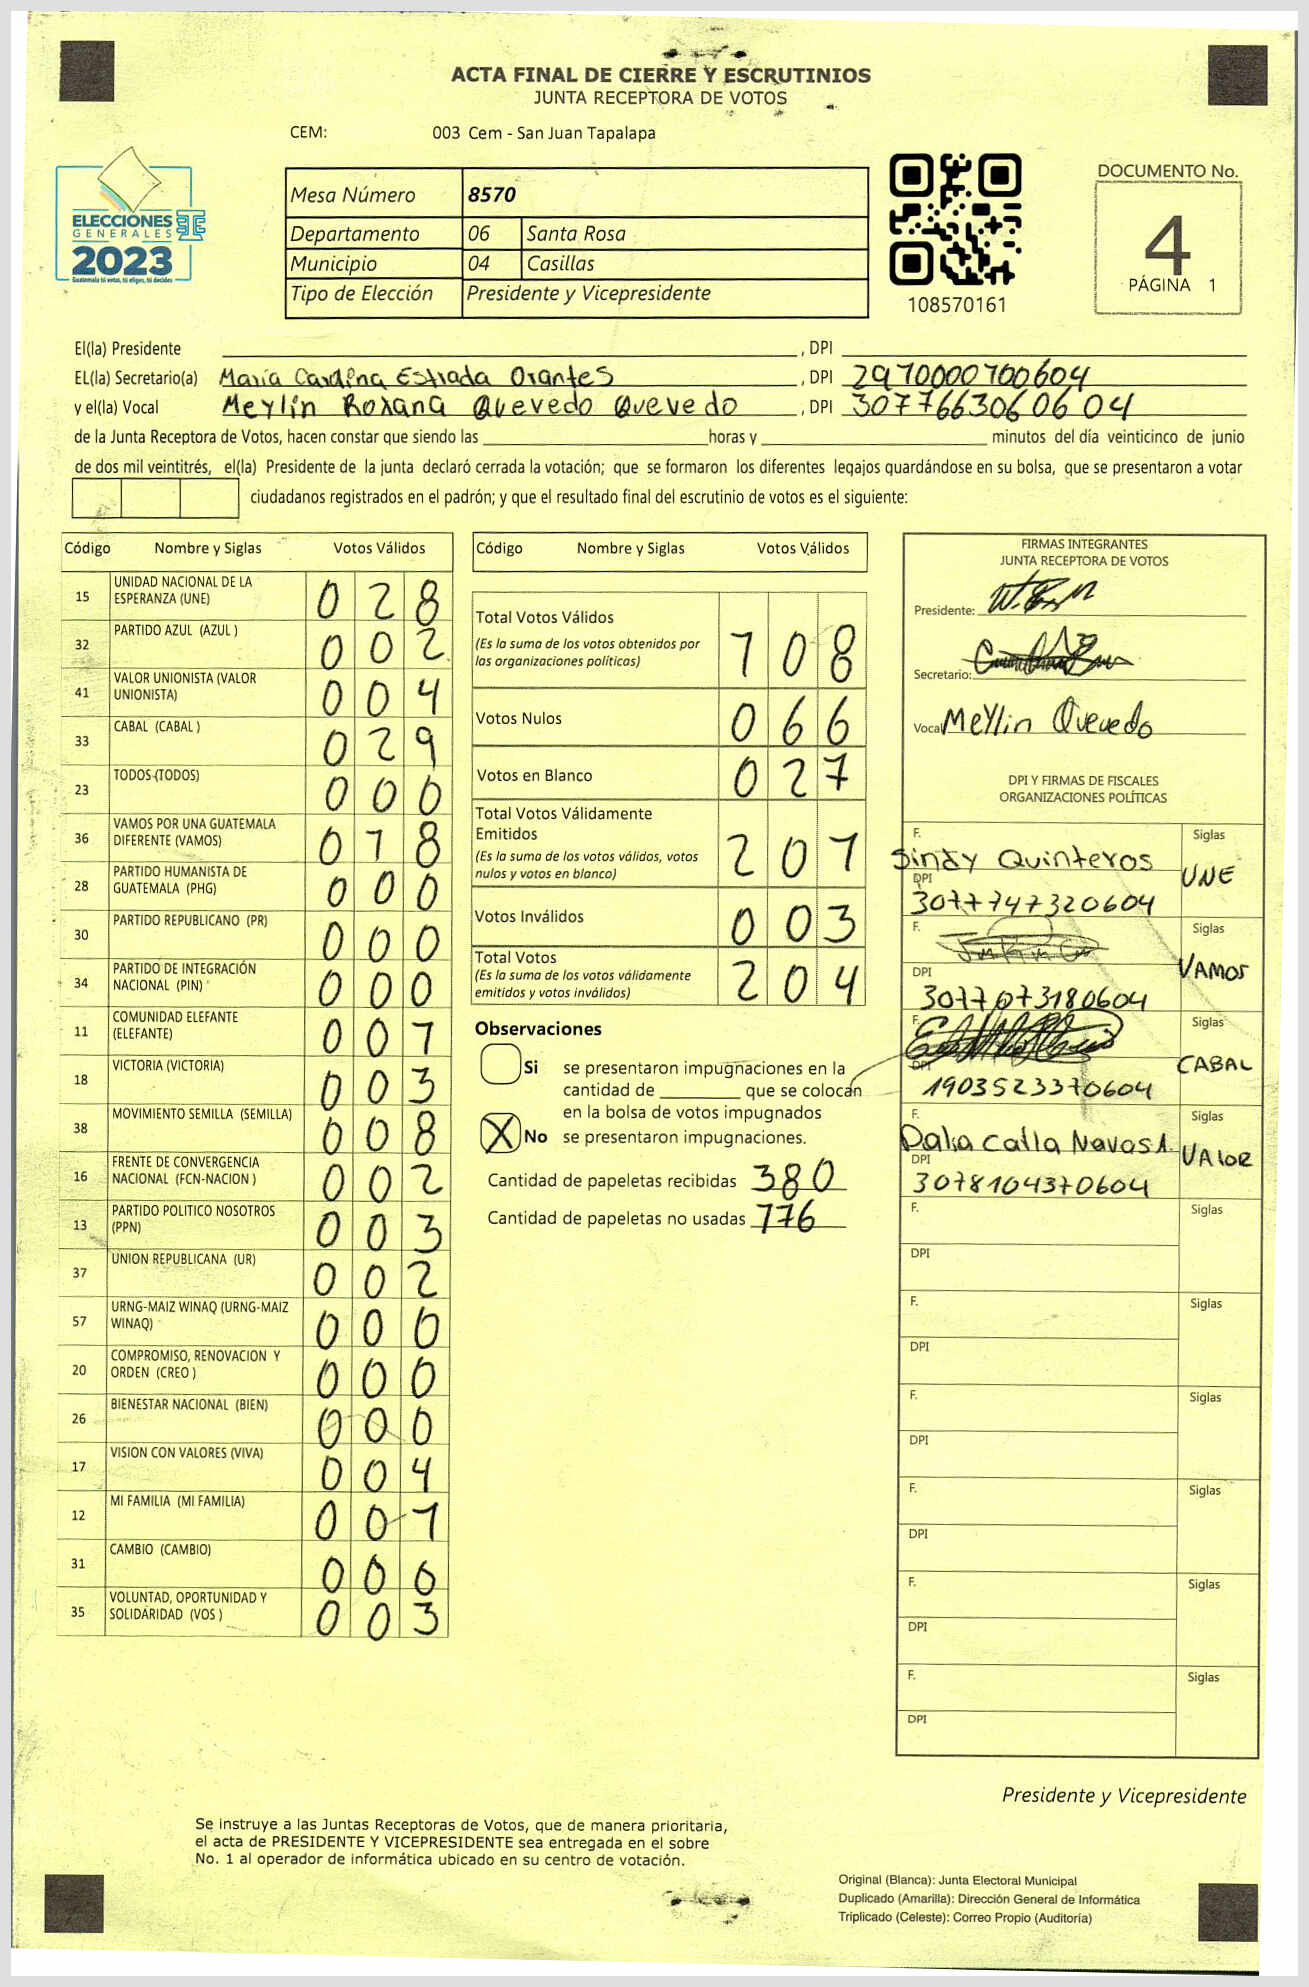 ACTA FINAL DE CIERRE Y ESCRUTINIOS
JUNTA RECEPTORA DE VOTOS
CEM: 003 Cem - San Juan Tapalapa
ELECCIONES
GENERALES
2023
Guatemala tú votas, tú eliges, tú decides
TSE
Mesa Número 8570
Departamento 06 Santa Rosa
Municipio 04 Casillas
Tipo de Elección Presidente y Vicepresidente
108570161
DOCUMENTO No.
4
PÁGINA 1
El(la) Presidente , DPI
EL(la) Secretario(a) Maria Carolina Estrada Orantes , DPI 2970000700604
y el(la) Vocal Meylin Roxana Quevedo Quevedo , DPI 3077663060604
de la Junta Receptora de Votos, hacen constar que siendo las horas y minutos del día veinticinco de junio
de dos mil veintitrés, el(la) Presidente de la junta declaró cerrada la votación; que se formaron los diferentes legajos quardándose en su bolsa, que se presentaron a votar
ciudadanos registrados en el padrón; y que el resultado final del escrutinio de votos es el siguiente:
Código Nombre y Siglas Votos Válidos
15 UNIDAD NACIONAL DE LA ESPERANZA (UNE) 0 2 8
32 PARTIDO AZUL (AZUL ) 0 0 2
41 VALOR UNIONISTA (VALOR UNIONISTA) 0 0 4
33 CABAL (CABAL ) 0 2 9
23 TODOS (TODOS) 0 0 0
36 VAMOS POR UNA GUATEMALA DIFERENTE (VAMOS) 0 1 8
28 PARTIDO HUMANISTA DE GUATEMALA (PHG) 0 0 0
30 PARTIDO REPUBLICANO (PR) 0 0 0
34 PARTIDO DE INTEGRACIÓN NACIONAL (PIN) 0 0 0
11 COMUNIDAD ELEFANTE (ELEFANTE) 0 0 1
18 VICTORIA (VICTORIA) 0 0 3
38 MOVIMIENTO SEMILLA (SEMILLA) 0 0 8
16 FRENTE DE CONVERGENCIA NACIONAL (FCN-NACION ) 0 0 2
13 PARTIDO POLITICO NOSOTROS (PPN) 0 0 3
37 UNION REPUBLICANA (UR) 0 0 2
57 URNG-MAIZ WINAQ (URNG-MAIZ WINAQ) 0 0 0
20 COMPROMISO, RENOVACION Y ORDEN (CREO ) 0 0 0
26 BIENESTAR NACIONAL (BIEN) 0 0 0
17 VISION CON VALORES (VIVA) 0 0 4
12 MI FAMILIA (MI FAMILIA) 0 0 1
31 CAMBIO (CAMBIO) 0 0
35 VOLUNTAD, OPORTUNIDAD Y SOLIDARIDAD (VOS ) 0 0 3
Código Nombre y Siglas Votos Válidos
Total Votos Válidos
(Es la suma de los votos obtenidos por las organizaciones políticas) 1 0 8
Votos Nulos 0 6 6
Votos en Blanco 0 2 7
Total Votos Válidamente Emitidos
(Es la suma de los votos válidos, votos nulos y votos en blanco) 2 0 1
Votos Inválidos 0 0 3
Total Votos
(Es la suma de los votos válidamente emitidos y votos inválidos) 2 0 4
Observaciones
Si se presentaron impugnaciones en la
cantidad de que se colocan
en la bolsa de votos impugnados
X No se presentaron impugnaciones.
Cantidad de papeletas recibidas 380
Cantidad de papeletas no usadas 176
FIRMAS INTEGRANTES
JUNTA RECEPTORA DE VOTOS
Presidente:
Secretario:
Vocal Meylin Quevedo
DPI Y FIRMAS DE FISCALES
ORGANIZACIONES POLÍTICAS
F. Sindy Quinteros Siglas UNE
DPI 3077747320604
F. Siglas VAMOS
DPI 3077073180604
F. Siglas CABAL
DPI 1903523370604
F. Siglas VALOR
DPI 3078104370604
F. Siglas
DPI
F. Siglas
DPI
F. Siglas
DPI
F. Siglas
DPI
F. Siglas
DPI
F. Siglas
DPI
Presidente y Vicepresidente
Se instruye a las Juntas Receptoras de Votos, que de manera prioritaria,
el acta de PRESIDENTE Y VICEPRESIDENTE sea entregada en el sobre
No. 1 al operador de informática ubicado en su centro de votación.
Original (Blanca): Junta Electoral Municipal
Duplicado (Amarilla): Dirección General de Informática
Triplicado (Celeste): Correo Propio (Auditoría)